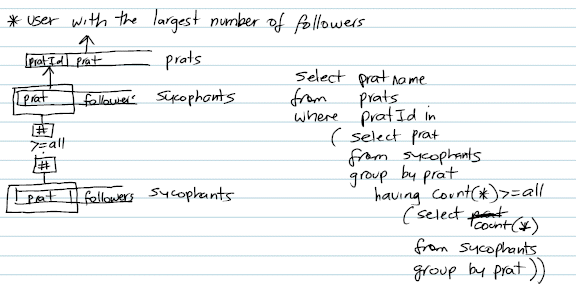 * user with the largest number of followers
pratId prat prats
prat followers sycophants
#
>=all
#
prat followers sycophants
select pratname
from prats
where pratId in
( select prat
from sycophants
group by prat
having count(*)>=all
(select prat count(*)
from sycophants
group by prat))